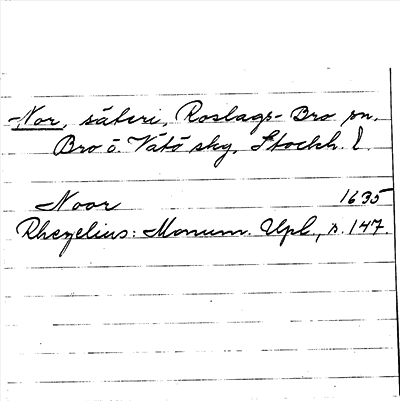 Nor, säteri, Roslags-Bro sn.
Bro o. Vätö skg, Stockh. l.
Noor 1635
Rhezelius: Monum. Upl., s. 147.